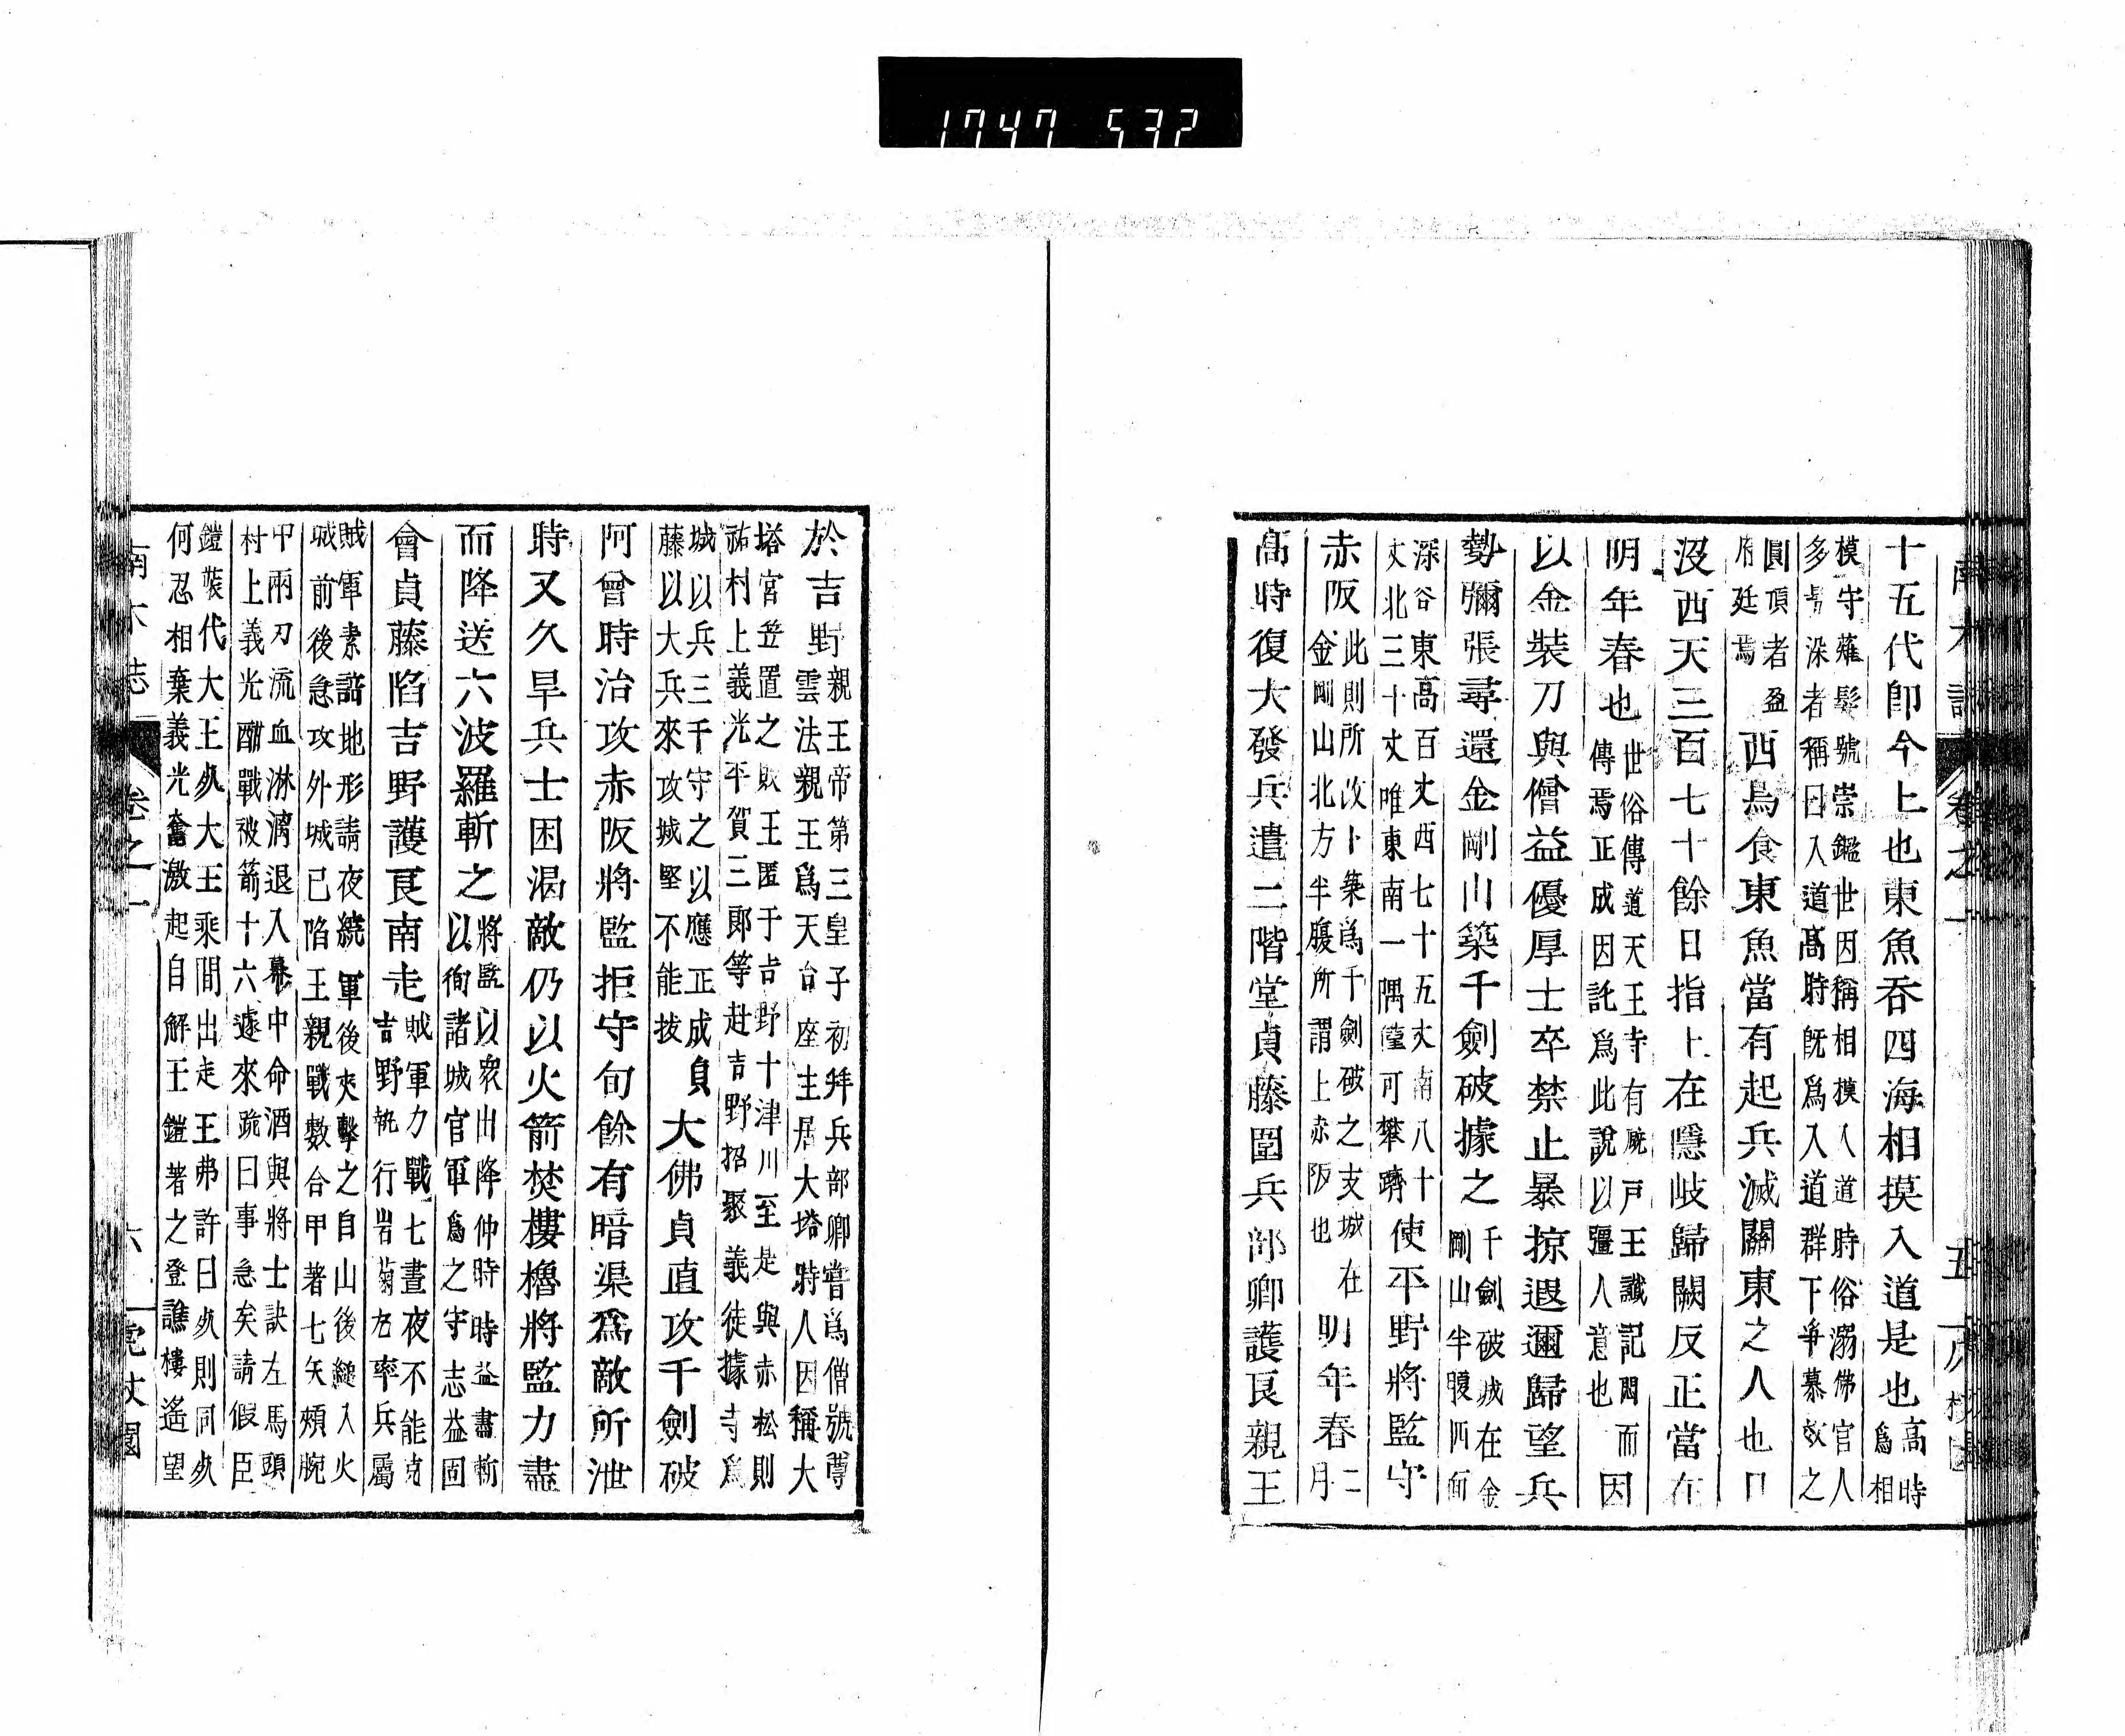 十五代即今上也東魚吞四海相摸入道是也高時爲相
模守薙髮號崇鑑世因稱相模入道時俗溺佛官人
多剪染者稱曰入道高時旣爲入道群下爭慕效之
圓頂者盈府廷焉西鳥食東魚當有起兵滅關東之人也日
沒西天三百七十餘日指上在隱岐歸闕反正當在
明年春也世俗傳道天王寺有廐戸王讖記閟而傳焉正成因託爲此說以彊人意也因
以金裝刀與僧益優厚士卒禁止暴掠遐邇歸望兵
勢彌張尋還金剛山築千劍破據之千劍破城在金剛山半腹四面
深谷東高百丈西七十五丈南八十丈北三十丈唯東南一隅僅可攀躋使平野將監守
赤阪此則所改卜築爲千劍破之支城在金剛山北方半腹所謂上赤阪也明年春二月
高時復大發兵遣二階堂貞藤圍兵部卿護良親王
卷之一
五
於吉野親王帝第三皇子初拜兵部卿嘗爲僧號尊雲法親王爲天台座主居大塔時人因稱大
塔宮笠置之敗王匿于吉野十津川至是與赤松則
祐村上義光平賀三郎等赴吉野招聚義徒據寺爲
城以兵三千守之以應正成貞藤以大兵來攻城堅不能拔大佛貞直攻千劍破
阿曾時治攻赤阪將監拒守旬餘有暗渠爲敵所泄
時又久旱兵士困渴敵仍以火箭焚樓櫓將監力盡
而降送六波羅斬之將監以衆出降仲時時益盡斬以徇諸城官軍爲之守志益固
會貞藤陷吉野護良南走賊軍力戰七晝夜不能克吉野執行岩菊丸率兵屬
賊軍素諳地形請夜繞軍後夾擊之自山後縋入火
城前後急攻外城已陷王親戰數合甲著七矢頰腕
中兩刃流血淋漓退入幕中命酒與將士訣左馬頭
村上義光酣戰被箭十六遽來跪曰事急矣請假臣
鎧裝代大王死大王乘間出走王弗許曰死則同死
何忍相棄義光奮激起自解王鎧著之登譙樓遙望
卷之一
六